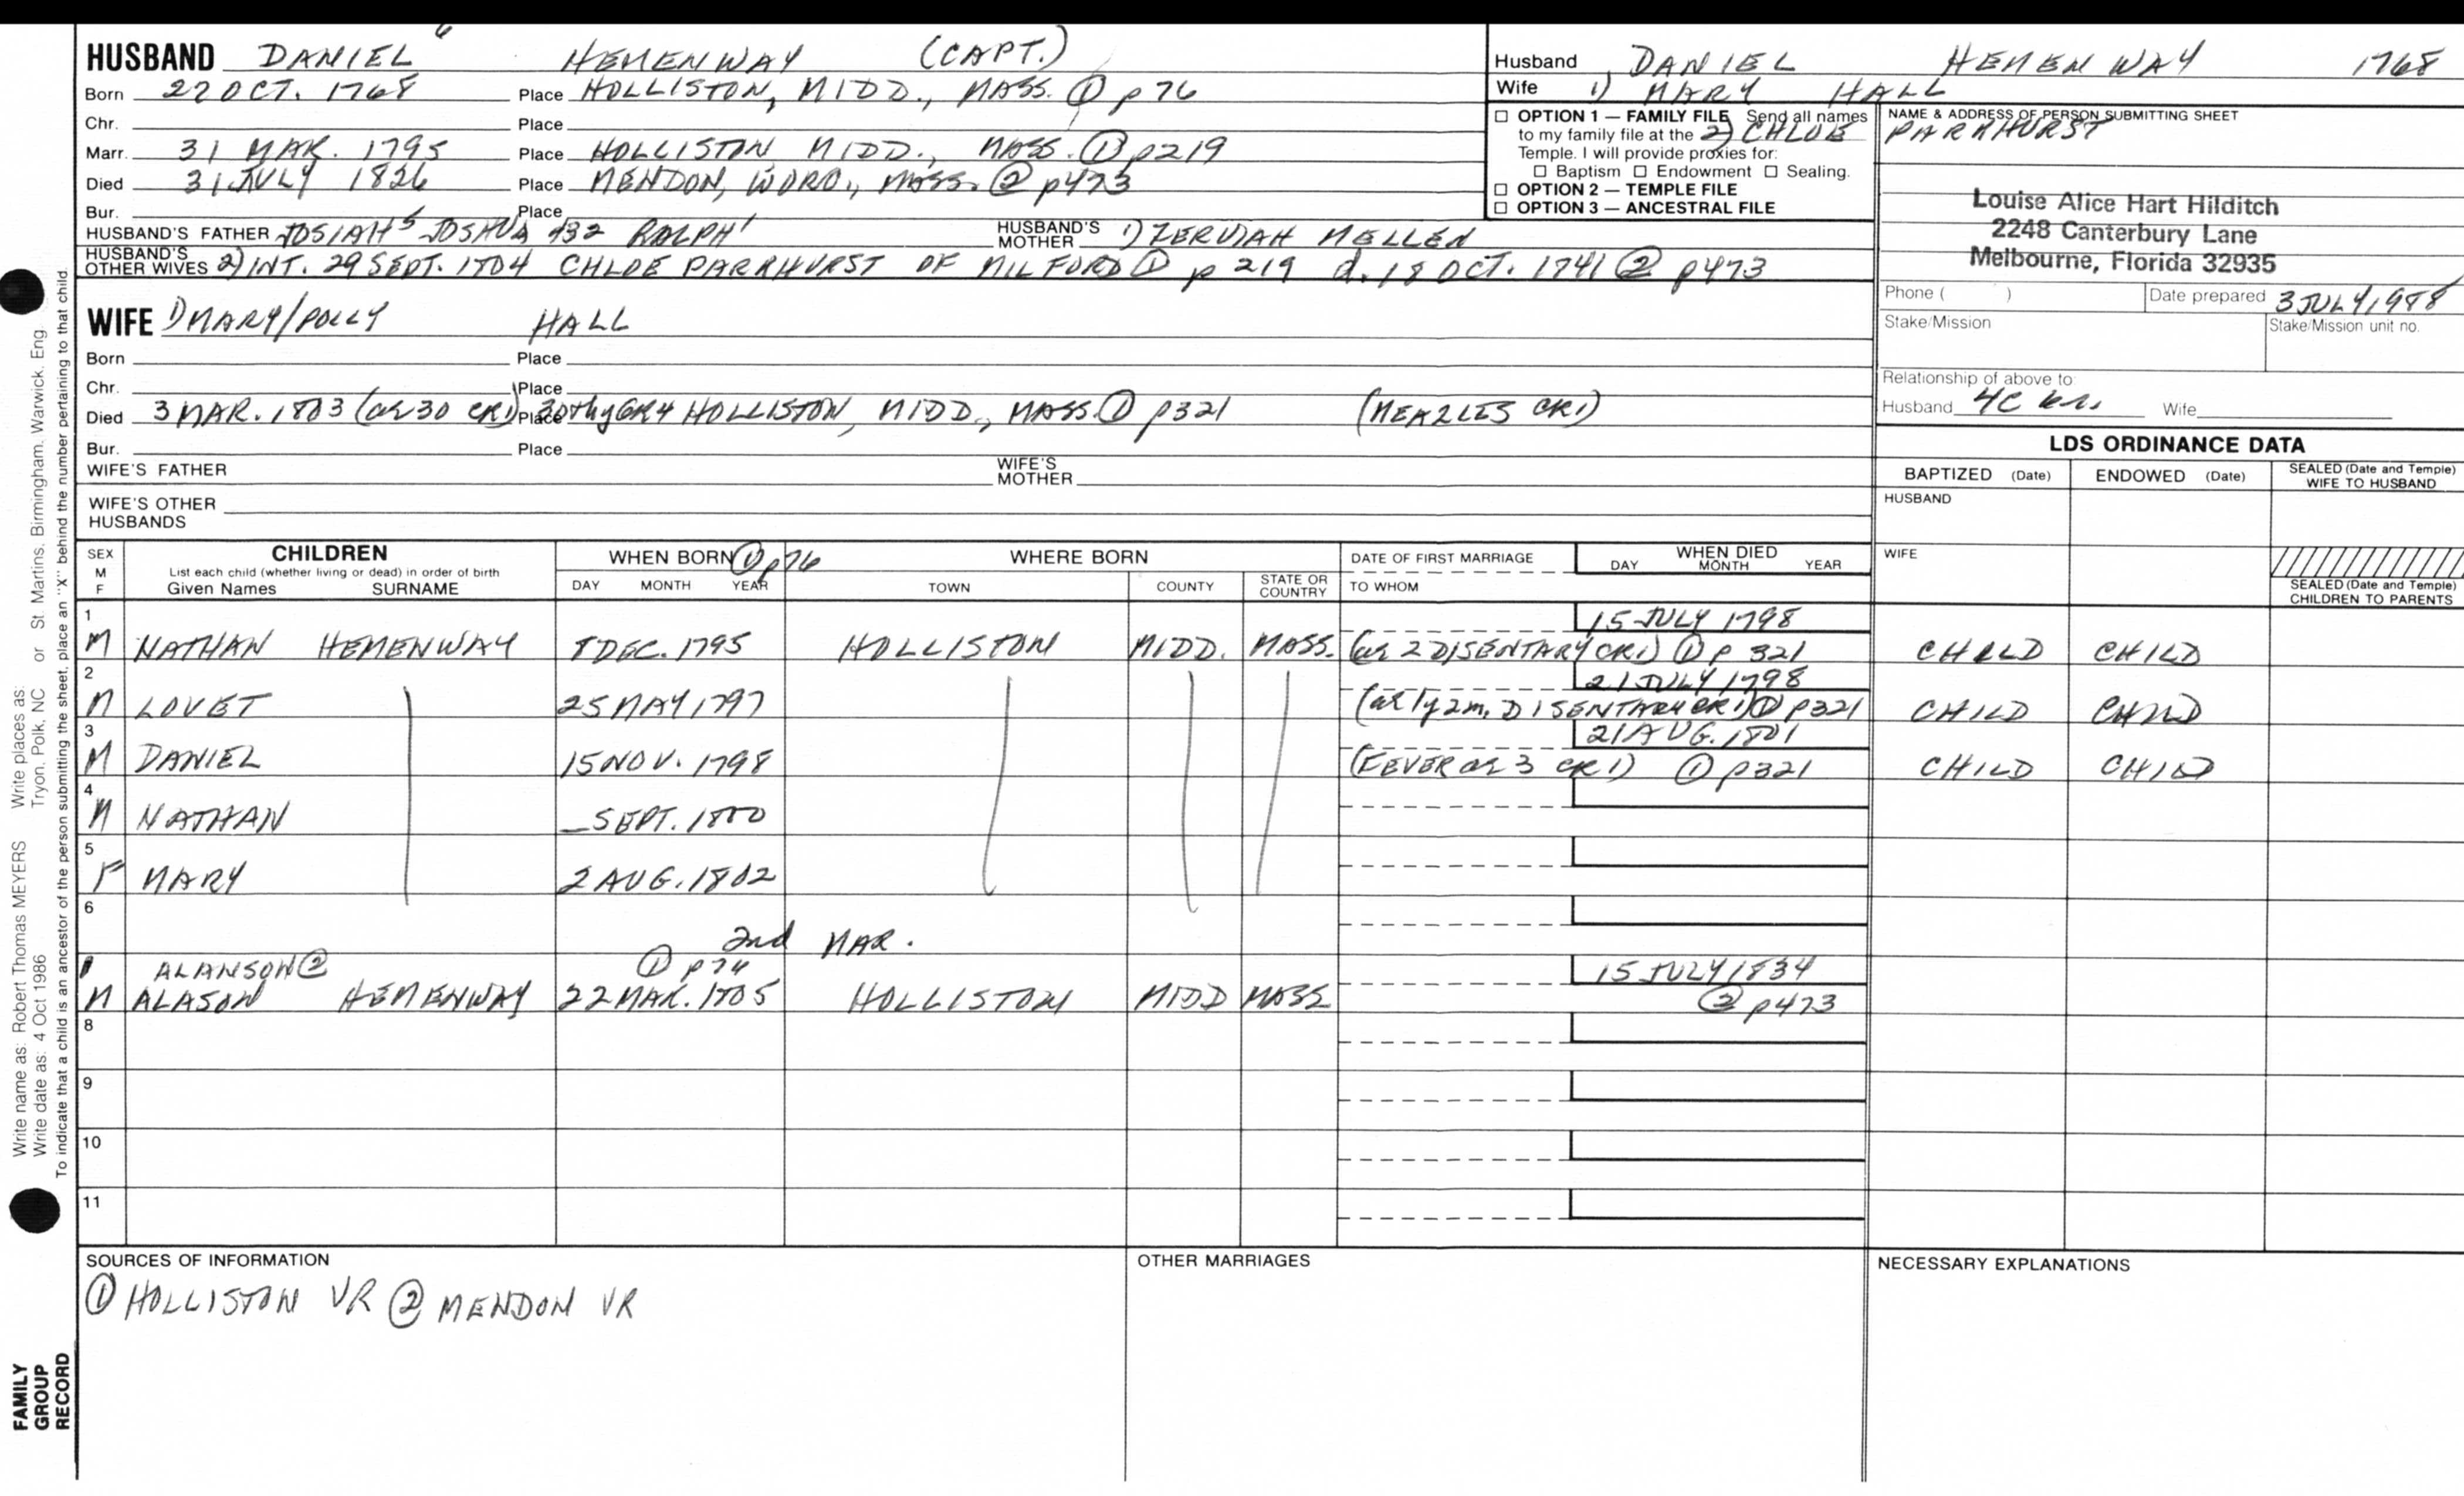 HUSBAND DANIEL 6 HEMENWAY (CAPT.)
Born 22 OCT. 1768 Place HOLLISTON, MIDD., MASS. ① p76
Chr. Place
Marr. 31 MAR. 1795 Place HOLLISTON MIDD., MASS. ① p219
Died 31 JULY 1826 Place MENDON, WORO., MASS. ② p473
Bur. Place
HUSBAND'S FATHER JOSIAH 5 JOSHUA 432 RALPH 1 HUSBAND'S MOTHER 1) ZERUIAH MELLEN
HUSBAND'S OTHER WIVES 2) INT. 29 SEPT. 1804 CHLOE PARKHURST OF MILFORD ① p 219 d. 18 OCT. 1841 ② p473
WIFE 1) MARY/POLLY HALL
Born Place
Chr. Place
Died 3 MAR. 1803 (ae 30 CR1) 30th GR4 Place HOLLISTON, MIDD., MASS. ① p321 (MEAZLES CR1)
Bur. Place
WIFE'S FATHER WIFE'S MOTHER
WIFE'S OTHER HUSBANDS
Husband DANIEL HEMENWAY 1768
Wife 1) MARY HALL
☐ OPTION 1 — FAMILY FILE Send all names
to my family file at the 2) CHLOE PARKHURST
Temple. I will provide proxies for:
☐ Baptism ☐ Endowment ☐ Sealing.
☐ OPTION 2 — TEMPLE FILE
☐ OPTION 3 — ANCESTRAL FILE
NAME & ADDRESS OF PERSON SUBMITTING SHEET
Louise Alice Hart Hilditch
2248 Canterbury Lane
Melbourne, Florida 32935
Phone ( ) Date prepared 3 JULY 1988
Stake/Mission Stake/Mission unit no.
Relationship of above to:
Husband 4C Wife
LDS ORDINANCE DATA
BAPTIZED (Date) ENDOWED (Date) SEALED (Date and Temple) WIFE TO HUSBAND
HUSBAND
WIFE
SEALED (Date and Temple) CHILDREN TO PARENTS
SEX M F
CHILDREN
List each child (whether living or dead) in order of birth
Given Names SURNAME
WHEN BORN ① p76
DAY MONTH YEAR
WHERE BORN
TOWN COUNTY STATE OR COUNTRY
DATE OF FIRST MARRIAGE
TO WHOM
WHEN DIED
DAY MONTH YEAR
1 15 JULY 1798
M NATHAN HEMENWAY 8 DEC. 1795 HOLLISTON MIDD. MASS. (ae 2 DISENTARY CR1) ① p 321 CHILD CHILD
2 21 JULY 1798
M LOVET 25 MAY 1797 (ae 1y 2m, DISENTARY CR1) ① p321 CHILD CHILD
3 21 AUG. 1801
M DANIEL 15 NOV. 1798 (FEVER ae 3 CR1) ① p321 CHILD CHILD
4
M NATHAN _ SEPT. 1800
5
F MARY 2 AUG. 1802
6
2nd MAR.
ALANSON ② ① p76 15 JULY 1834
M ALASON HEMENWAY 22 MAR. 1805 HOLLISTON MIDD MASS ② p473
8
9
10
11
SOURCES OF INFORMATION
① HOLLISTON VR ② MENDON VR
OTHER MARRIAGES
NECESSARY EXPLANATIONS
Write name as: Robert Thomas MEYERS Write places as: St. Martins, Birmingham, Warwick, Eng
Write date as: 4 Oct 1986 Tryon, Polk, NC or
To indicate that a child is an ancestor of the person submitting the sheet, place an "X" behind the number pertaining to that child.
FAMILY
GROUP
RECORD